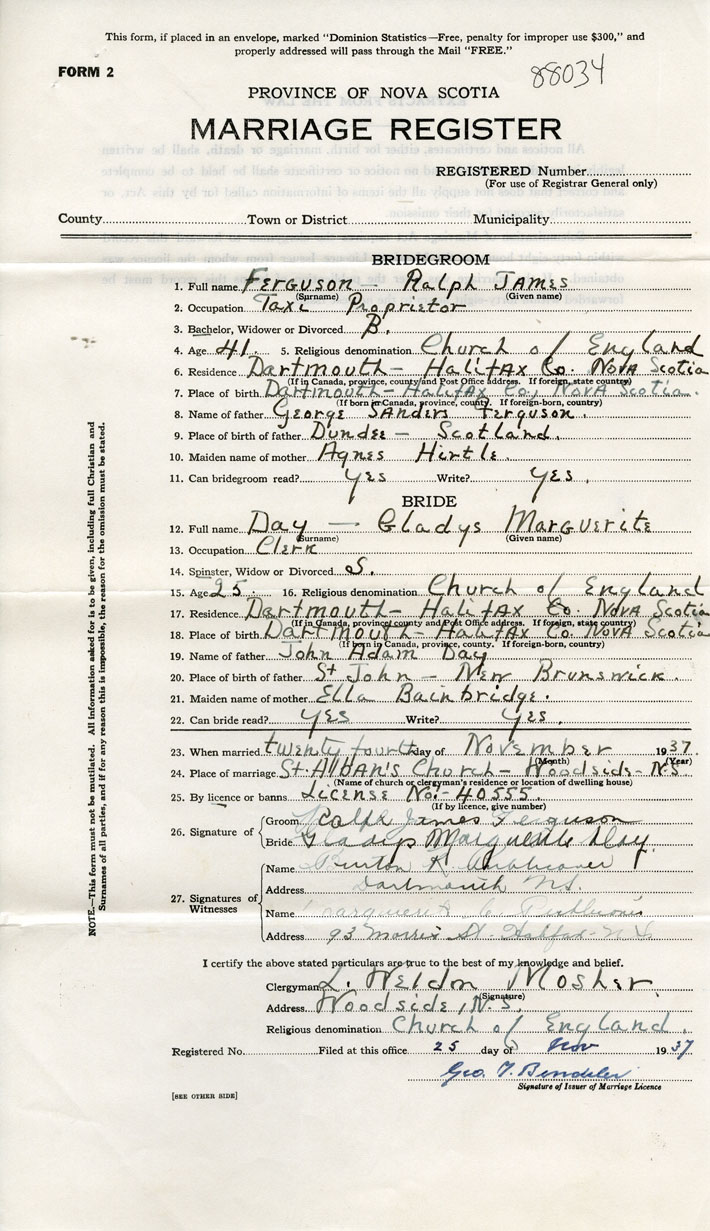 This form, if placed in an envelope, marked "Dominion Statistics—Free, penalty for improper use $300," and
properly addressed will pass through the Mail "FREE."
FORM 2
88034
PROVINCE OF NOVA SCOTIA
MARRIAGE REGISTER
REGISTERED Number
(For use of Registrar General only)
County Town or District Municipality
BRIDEGROOM
1. Full name Ferguson — Ralph James
(Surname) (Given name)
2. Occupation Taxi Proprietor
3. Bachelor, Widower or Divorced B.
4. Age 41. 5. Religious denomination Church of England
6. Residence Dartmouth — Halifax Co. Nova Scotia
(If in Canada, province, county and Post Office address. If foreign, state country)
7. Place of birth Dartmouth — Halifax Co, Nova Scotia.
(If born in Canada, province, county. If foreign-born, country)
8. Name of father George Sanders Ferguson.
9. Place of birth of father Dundee — Scotland.
10. Maiden name of mother Agnes Hirtle.
11. Can bridegroom read? Yes Write? Yes.
BRIDE
12. Full name Day — Gladys Marguerite
(Surname) (Given name)
13. Occupation Clerk
14. Spinster, Widow or Divorced S.
15. Age 25. 16. Religious denomination Church of England
17. Residence Dartmouth — Halifax Co. Nova Scotia
(If in Canada, province, county and Post Office address. If foreign, state country)
18. Place of birth Dartmouth — Halifax Co. Nova Scotia
(If born in Canada, province, county. If foreign-born, country)
19. Name of father John Adam Day
20. Place of birth of father St John — New Brunswick.
21. Maiden name of mother Ella Bainbridge.
22. Can bride read? Yes Write? Yes.
23. When married twenty fourth day of November 1937.
(Month) (Year)
24. Place of marriage St. Alban's Church — Woodside — N.S.
(Name of church or clergyman's residence or location of dwelling house)
25. By licence or banns License No. — 40555.
(If by licence, give number)
26. Signature of Groom Ralph James Ferguson
Bride Gladys Marguerite Day.
27. Signatures of Witnesses
Name K.
Address Dartmouth N.S.
Name
Address 93 Morris St. Halifax — N.S.
I certify the above stated particulars are true to the best of my knowledge and belief.
Clergyman L. Weldon Mosher
(Signature)
Address Woodside, N.S.
Religious denomination Church of England.
Registered No. Filed at this office 25 day of Nov 1937
Geo. T.
Signature of Issuer of Marriage Licence
[SEE OTHER SIDE]
NOTE.—This form must not be mutilated. All information asked for is to be given, including full Christian and
Surnames of all parties, and if for any reason this is impossible, the reason for the omission must be stated.